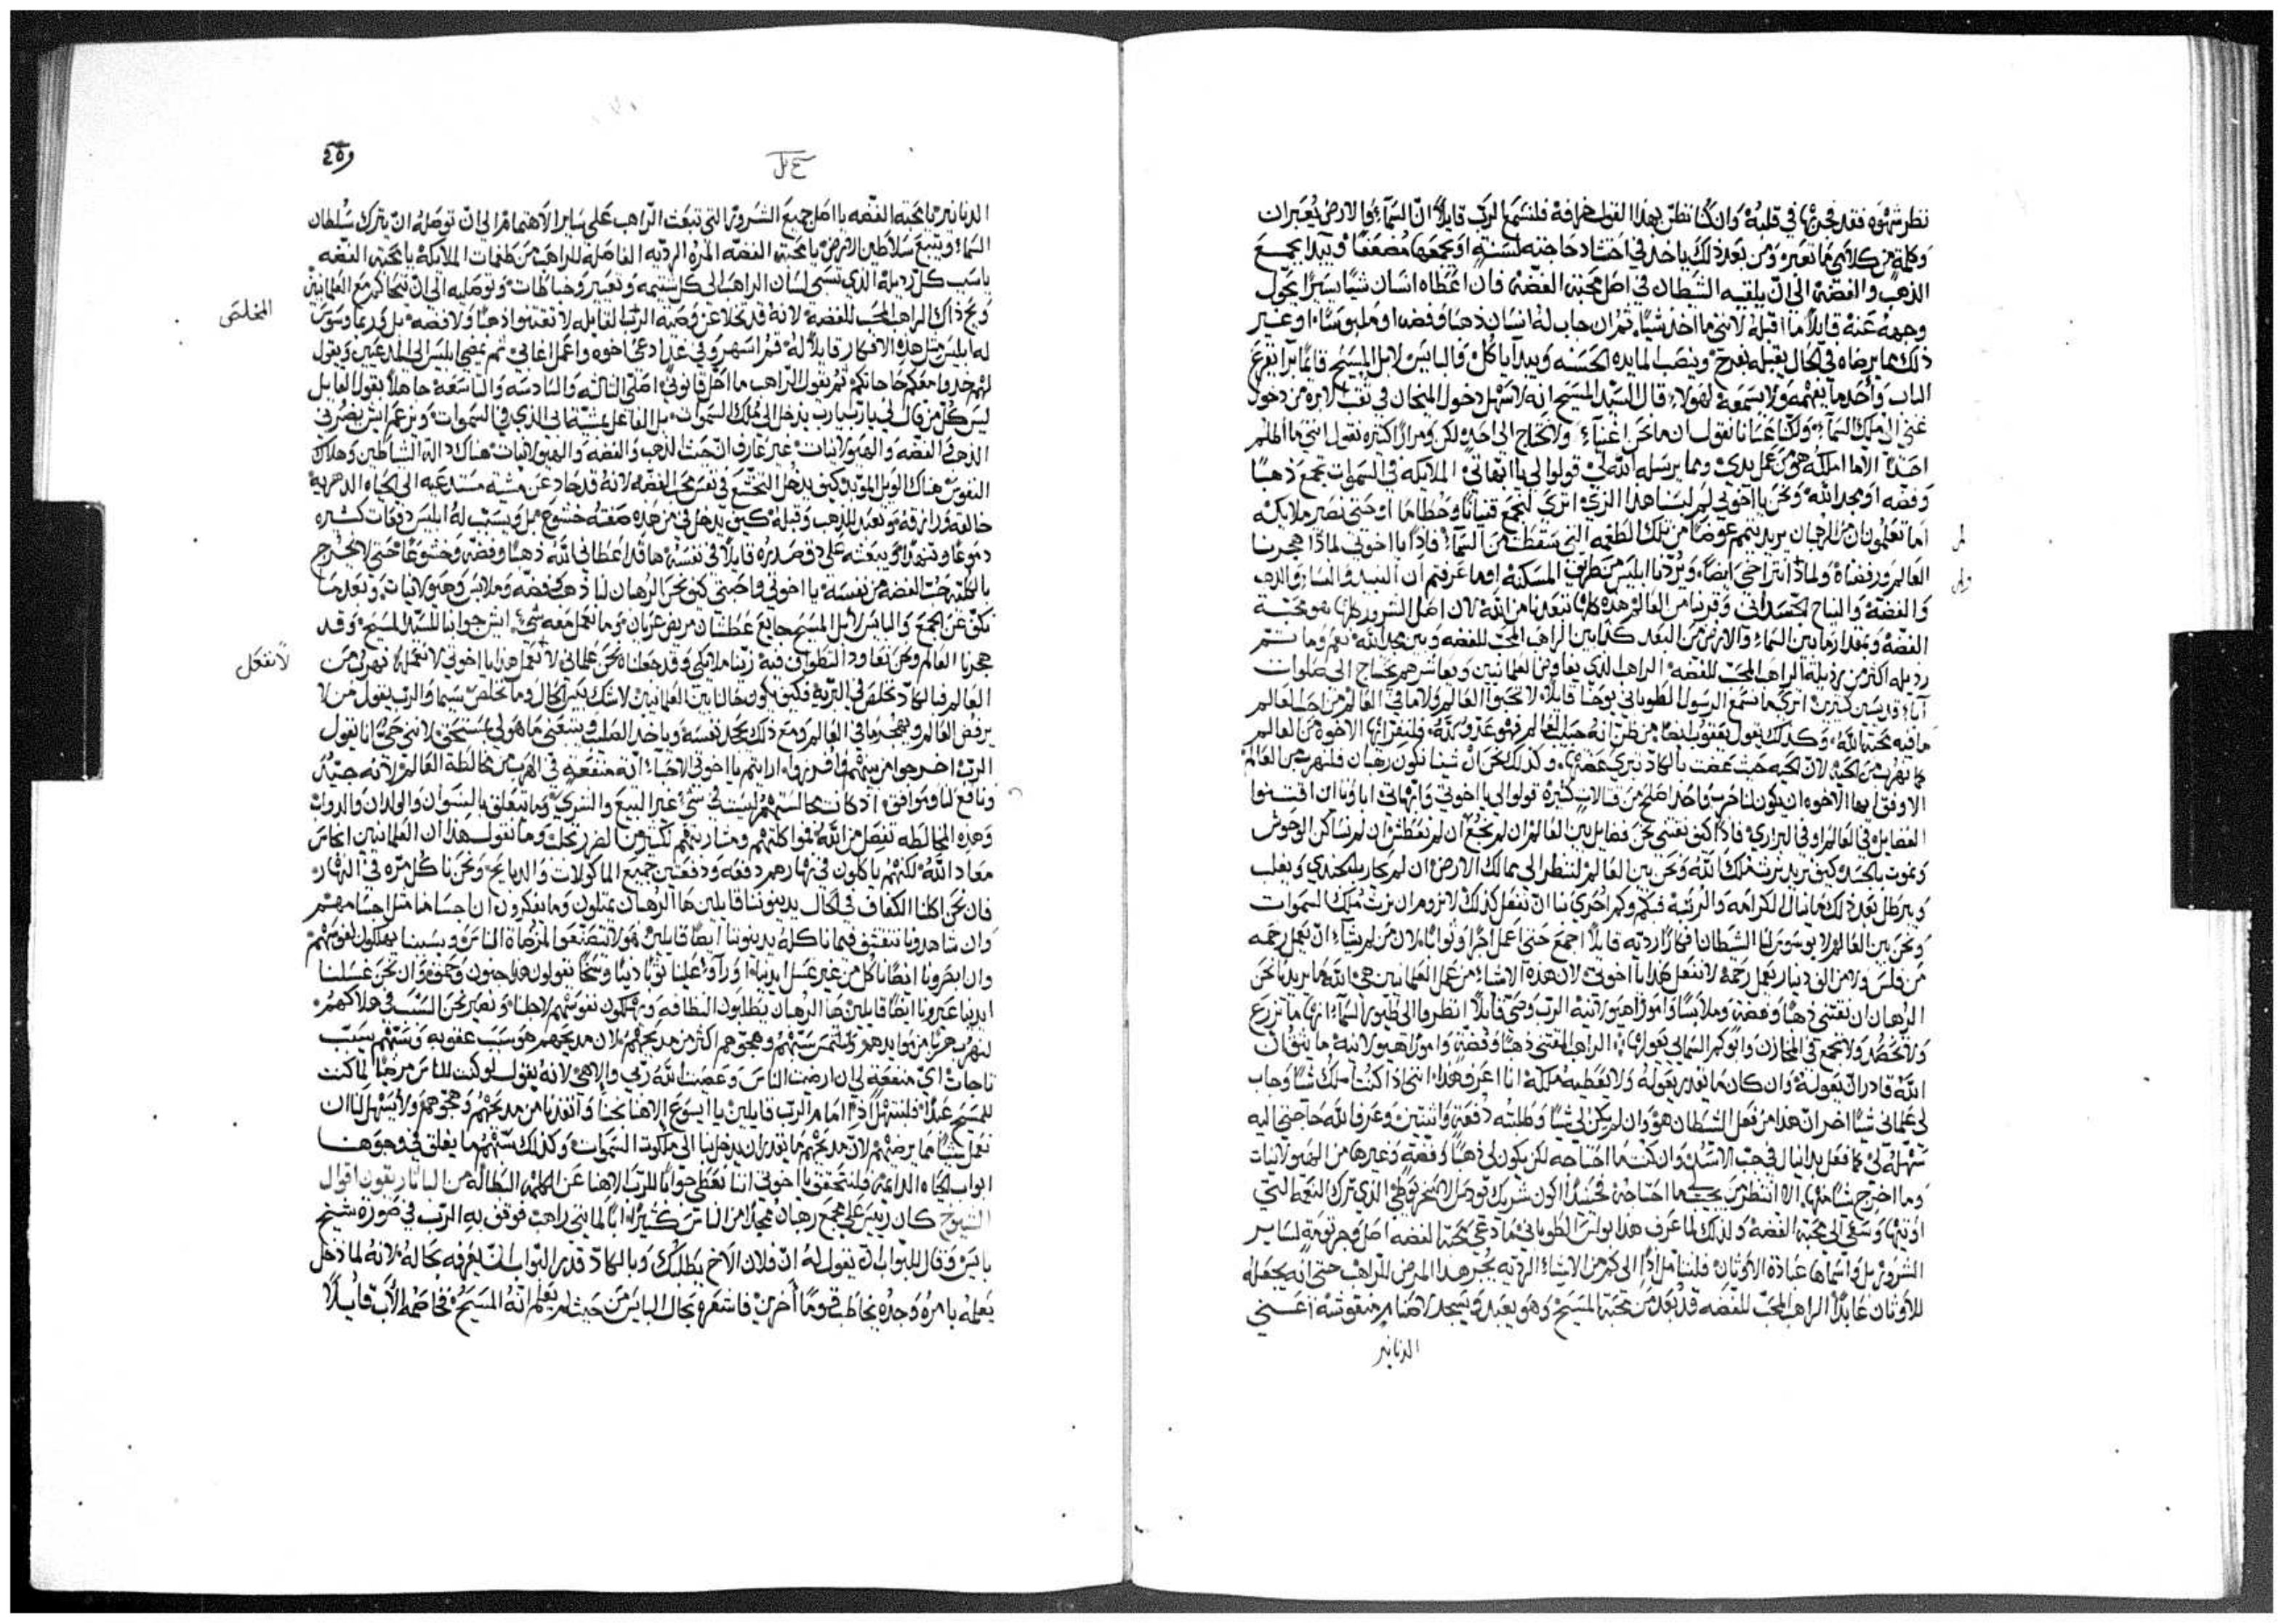 نظر شهوه فقد فجر بها في قلبه وان كنا نظن بهذا القول خرافة فلنسمع الرب قايلا ان السماء والارض يعبران
وكلمة من كلامي ما تعبر ومن بعد ذلك ياخذ في احتساد حاجته لسنته او يجمعها مضعفا ويبدا يجمع
الذهب والفضة الى ان يلقيه الشيطان في اصل محبة الفضة فان اعطاه انسان شيا يسيرا يحول
وجهه عنه قايلا ما اقبله لانني ما اخذ شيا ثم ان جاب له انسان ذهبا وفضه او ملبوسا او غير
ذلك مما يرضاه في الحال يقبله بفرح وينصب المايده الحسنه ويبدا ياكل والبايس لا بل المسيح قايما برا يقرع
الباب واحد ما يفهمه ولا يسمعه لهولاء قال السيد المسيح انه لاسهل دخول الجمل في ثقب الابره من دخول
غني الى ملك السماء ولكن عسانا نقول ان ما نحن اغنياء ولا نحتاج الى احد لكن ومرارا كثيره نقول انني ما اظلم
احدا الا ما املكه هو من عمل يدي ومما يرسله الله لي قولوا لي يا ابهاتي الملايكه في السموات تجمع ذهبا
وفضه او مجد الله ونحن يا اخوتي لم لبسنا هذا الزي اترى لنجمع قنيانا وحطاما او حتى نصير ملايكه
اما تعلمون ان الرهبان يريد يتمم عوضا من تلك الطغمه التي سقطت من السماء فاذا يا اخوتي لماذا هجرنا
العالم ورفضناه ولماذا نتراخى ايضا ويردنا ابليس من طريق المسكنه اوما عرفتم ان النبيذ والنساء والذهب
والفضة والنياح الجسداني وقربنا من العالم هذه كلها تبعدنا من الله لان اصل الشرور كلها هو محبة
الفضة وبمقدار ما بين السماء والارض من البعد كذا بين الراهب المحب للفضه وبين مجد الله نعم وما تتم
رذيله اكثر من رذيلة الراهب المحب للفضه الراهب الذي يفاوض العلمانيين ويعاشرهم يحتاج الى صلوات
اباء قديسين كثيرين اترى ما نسمع الرسول الطوباني يوحنا قايلا لا تحبوا العالم ولا ما في العالم من احب العالم
ما فيه محبة الله وكذلك يقول يعقوب ايضا من ظن انه حبيب للعالم فهو عدو لله فلنفر ايها الاخوه من العالم
كما نهرب من الحيه لان الحيه حيث عضت بالكاد تبرى عضتها وكذلك نحن ان شينا نكون رهبان فلنهرب من العالم
الاوفق ايها الاخوه ان يكون لنا حرب واحد اصلح من قتالات كثيرة قولوا لي يا اخوتي وابهاتي اباونا اين اقتنوا
الفضايل في العالم او في البراري فاذا كيف نقتني نحن فضايل بين العالم ان لم نجع ان لم نعطش ان لم نساكن الوحوش
ونموت بالجسد وكيف نريد نرث ملك الله ونحن بين العالم لننظر الى ممالك الارض ان لم يحارب الجندي ويغلب
ونحن بين العالم لا يوسوس لنا الشيطان افكارا رديه قايلا اجمع حتى اعمل اجرا وثوابا لان من لم يشاء ان يعمل رحمه
من فلس ولا من الف دينار يعمل رحمة لا نفعل هكذا يا اخوتي لان هذه الاشياء من عمل العلمانيين هي الله ما يريدنا نحن
الرهبان ان نقتني ذهبا وفضة وملابسا وامورا هيولانيه الرب وصى قايلا انظروا الى طيور السماء انها ما تزرع
ولا تحصد ولا تجمع في المخازن وابوكم السماني يقوتها الراهب المقتني ذهبا وفضة وامورا هيولانية ما يثق ان
الله قادر ان يقوله وان كان ما يقدر يقوله ولا يعطيه ملكه انا اعرف هذا انني اذا كنت املك شيا وجاب
لي علماني شيا اخر ان هذا من فعل الشيطان هو وان لم يكن لي شيا وطلبته دفعة واثنتين وعرف الله حاجتي اليه
سهله لي كما فعل بدانيال في جب الاسد وان كنت ما احتاجه لكن يكون لي ذهبا وفضة وغيرها من الهيولانيات
اوتيها وسعى الى محبة الفضة ولذلك لما عرف هذا بولس الطوباني ما دعى محبة الفضه اصل وجرثومة لساير
الشرور بل واسماها عبادة الاوثان فلنتامل اذا الى كم من الاشياء الرديه يجتر هذا المرض للراهب حتى انه يجعله
للاوثان عابدا الراهب المحب للفضه قد بعد من محبة المسيح وهو يعبد ويسجد لاصنام منقوشه اعني
الدنانير
الدنانير يا محبة الفضه يا اصل جميع الشرور التي تبعث الراهب على ساير الاهتمام الى ان توصله ان يترك سلطان
السماء ويتبع سلاطين الارض يا محبة الفضه المره الرديه الفاصله للراهب من طغمات الملايكه يا محبة الفضه
يا سبب كل رذيلة الذي تسبي لسان الراهب الى كل شتيمه وتعيير وخباطات وتوصليه الى ان يتحاكم مع العلمانيين
ويح ذاك الراهب المحب للفضة لانه قد تخلا عن وصية الرب القايله لا تقتنوا ذهبا ولا فضه بل وربما وسوس
المخلص
له ابليس مثل هذه الافكار قايلا له قم اسهر وفي غد ادعي اخوه واعمل اغابي ثم يمضي ابليس الى المدعيين ويقول
لهم خذوا معكم حاجاتكم ثم يقول الراهب ما احل قانوني اصلي الثالثه والسادسه والتاسعة جاهلا بقول القايل
ليس كل من قال لي يا رب يا رب يدخل الى ملك السموات بل الفاعل مشية ابي الذي في السموات ويزعم ايش يضرني
الذهب والفضه والهيولانيات غير عارف ان حيث الذهب والفضه والهيولانيات هناك دالة الشياطين وهلاك
النفوس هناك الويل الموبد وكيف يدخل التخشع في نفس محب الفضه لانه قد حاد عن مشية مستدعيه الى الحياه الدهرية
دموعا وتنهدا ويبعثه على دق صدره قايلا في نفسه ها قد اعطاني الله ذهبا وفضه وخشوعا حتى لا تخرج
بالكليه حب الفضه من نفسه يا اخوتي واحبتي كيف نحن الرهبان لنا ذهب وفضه وملابس وهيولانيات وبعد ما
نكف عن الجمع والبايس لا بل المسيح جايع عطشان مريض عريان وما نعمل معه شيء ايش جوابنا للسيد المسيح وقد
هجرنا العالم ونحن نعاود التطواف فيه زينا ملايكي وقد جعلناه نحن علماني لا نعمل هذا يا اخوتي لا نعمل بل نهرب من
لا نفعل
العالم فبالكاد نخلص في البرية فكيف يكون حالنا بين العلمانيين لا شك بشر الحال وما نخلص سيما والرب يقول من لا
يرفض العالم ويهجر ما في العالم ومع ذلك يجحد نفسه وياخذ الصليب ويتبعني ما هو لي بمستحق لانني حي انا يقول
الرب اخرجوا من بينهم وافرزوا ارايتم يا اخوتي الاحباء انه منفعه في الهرب من مخالطة العالم لانه جيد
ونافع لنا وموافق اذ كانت مجالستهم ليست في شيء غير البيع والشري وما يتعلق بالنسوان والولدان والدواب
وهذه المخالطه تفصل من الله نعم ومواكلتهم ومشاربتهم لكثير من الضرر تجلب وما نقول هذا ان العلمانيين انجاس
معاذ الله لكنهم ياكلون في نهارهم دفعه ودفعتين جميع الماكولات والذبايح ونحن ناكل مره في النهار
فان نحن اكلنا الكفاف في الحال يدينوننا قايلين ها الرهبان يمتلون وما يفكرون ان اجسامنا مثل اجسامهم
وان شاهدونا نتقشف فيما ناكله يدينونا ايضا قايلين هولاء تصنعوا لمرضاة الناس وبسببنا يهلكون نفوسهم
وان ابصرونا ايضا ناكل من غير غسل ايدينا او راوا علينا ثوبا دنيا وسخا يقولون هذا جنون وحمق وان نحن غسلنا
ايدينا عيرونا ايضا قايلين ها الرهبان يطلبون النظافه ويهلكون نفوسهم لاجلنا ونصير نحن السبب في هلاكهم
لنهرب هربا من موايدهم ونلتمس سبهم وهجوهم اكثر من مديحهم لان مديحهم هو سبب عقوبه وشتمهم يسبب
تاجات اي منفعة لي ان ارضيت الناس وغضبت الله ربي والاهي لانه يقول لو كنت للناس مرضيا لما كنت
للمسيح عبدا فلنبتهل اذا امام الرب قايلين يا ايسوع الاهنا نجنا وانقذنا من مديحهم وهجوهم ولا يسهل لنا ان
نفعل شيا مما يرضيهم لان مديحهم ما يقدر ان يدخلنا الى ملكوت السموات وكذلك سبهم ما يغلق في وجوهنا
ابواب الحياه الدايمه فلنتحقق يا اخوتي اننا نعطي جوابا للرب الاهنا عن الكلمه البطاله من الباتاريقون اقوال
الشيوخ كان رييس على مجمع رهبان ممجدا من الناس كثيرا ابا لمايتي راهب فوقف به الرب في صورة شيخ
بايس وقال للبواب ان يقول له ان فلان الاخ يطلبك وبالكاد قدر البواب ان يعرفه بحاله لانه لما دخل
يعلمه بامره وجده يخاطب قوما اخرين فاشعره بحال البايس من حيث لم يعلم انه المسيح فخاصمه الاب قايلا